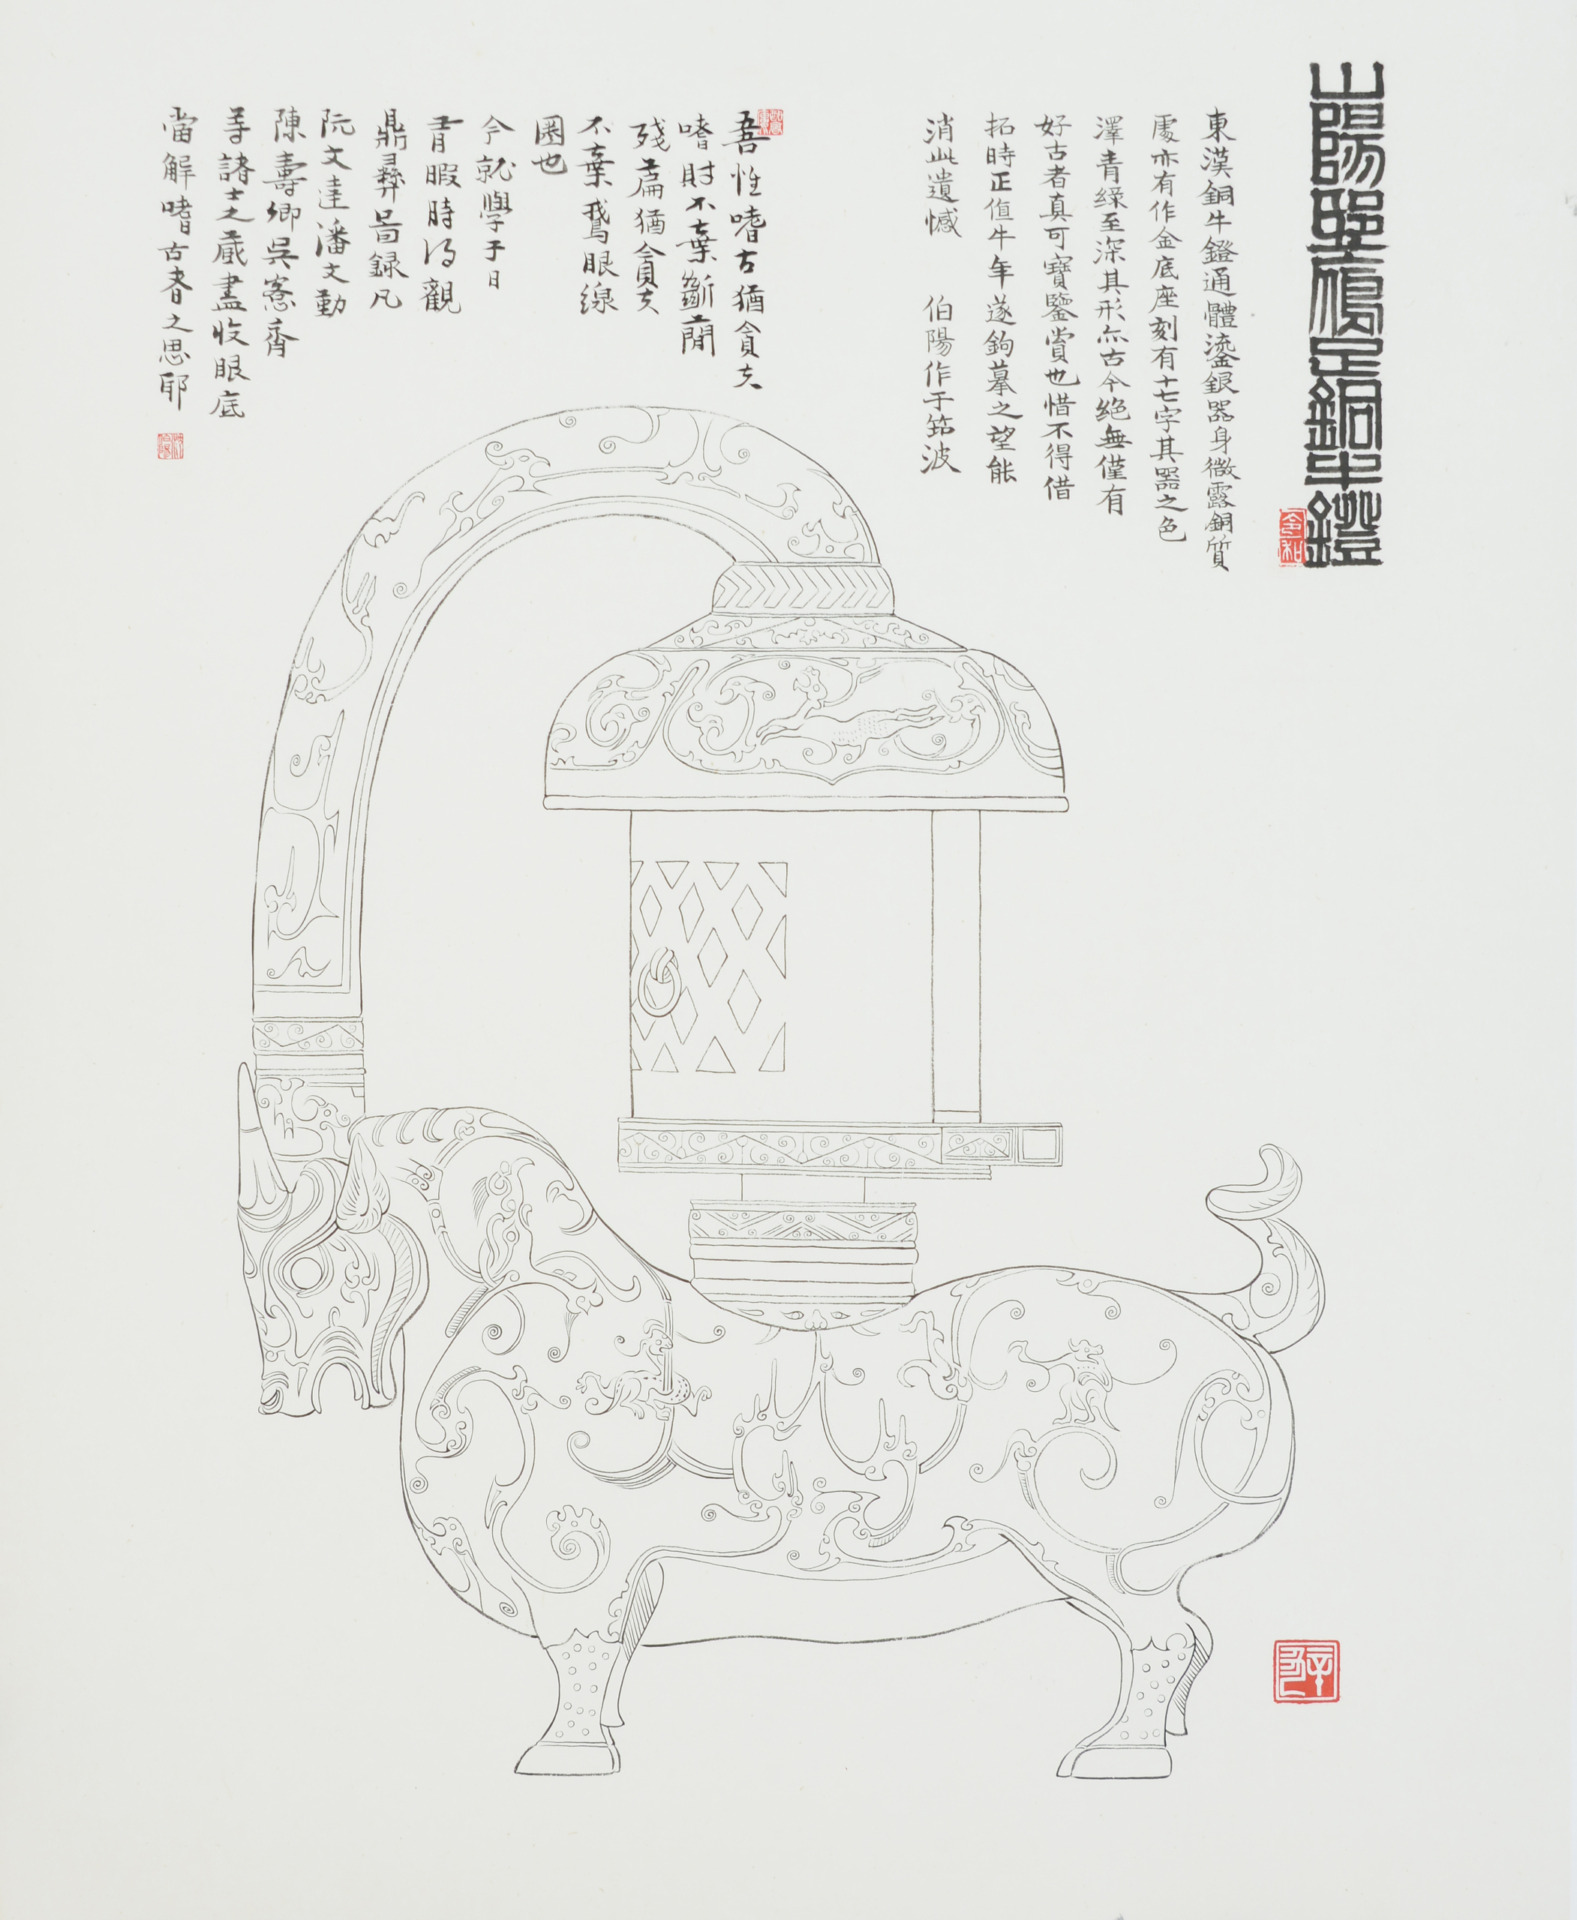 山陽邸鴈足銅牛鐙
令和
東漢銅牛鐙通體鎏銀器身微露銅質
處亦有作金底座刻有十七字其器之色
澤青綠至深其形亦古今絕無僅有
好古者真可寶鑒賞也惜不得借
拓時正值牛年遂鉤摹之望能
消此遺憾 伯陽作于筑波
吾性嗜古猶貪夫
嗜財不棄斷簡
殘篇猶貪夫
不棄鵞眼綫
圜也
今就學于日
有暇時得觀
鼎彝啚録凡
阮文達潘文勤
陳壽卿吳愙齋
等諸士之蔵盡收眼底
當解嗜古者之思耶
辛丑